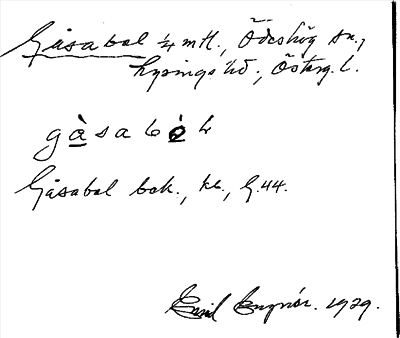 Gåsabol ¼ mtl., Ödeshög sn.,
Lysings hd., Österg. l.
gàsabòl
Gåsabol bok., kb., G. 44.
Emil 1929.